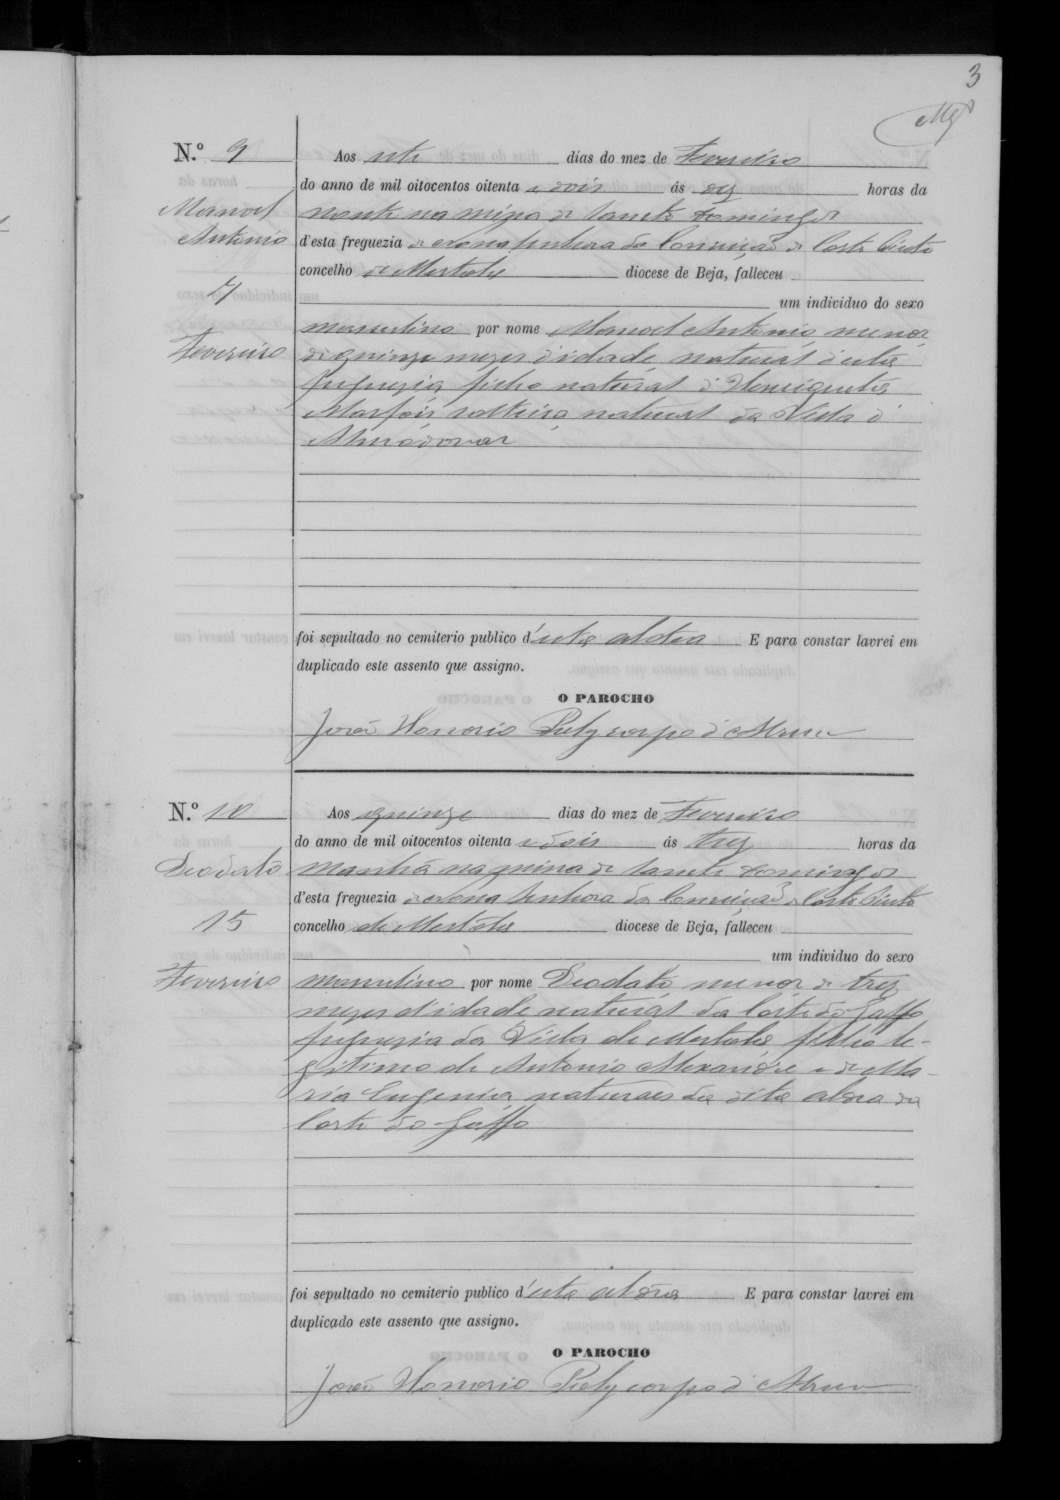 3
N.º 9
Aos sete dias do mez de Fevereiro
do anno de mil oitocentos oitenta e dois ás dez horas da
Manoel
noute na mina de Sancto Domingos
Antonio
d'esta freguezia de Nossa Senhora da Conceição de Corte Pinto
concelho de Mertola diocese de Beja, falleceu
7
um individuo do sexo
Fevereiro
masculino por nome Manoel Antonio menor
de quinze mezes d'idade, natural d'esta
freguezia filho natural d'Henriqueta
solteira, natural da Villa d'
Almodovar
foi sepultado no cemiterio publico d'esta aldea E para constar lavrei em
duplicado este assento que assigno.
O PAROCHO
José Honorio Polycarpo d'
N.º 10
Aos quinze dias do mez de Fevereiro
do anno de mil oitocentos oitenta e dois ás trez horas da
Deodato
manhã na mina de Sancto Domingos
d'esta freguezia de Nossa Senhora da Conceição de Corte Pinto
15
concelho de Mertola diocese de Beja, falleceu
um individuo do sexo
Fevereiro
masculino por nome Deodato menor de trez
mezes d'idade natural da Corte do Gaffo
freguezia da Villa de Mertola filho le-
gitimo de Antonio Alexandre e de Ma-
ria Eugenia, naturaes da dita aldea da
Corte do Gaffo
foi sepultado no cemiterio publico d'esta aldêa E para constar lavrei em
duplicado este assento que assigno.
O PAROCHO
José Honorio Polycarpo d'